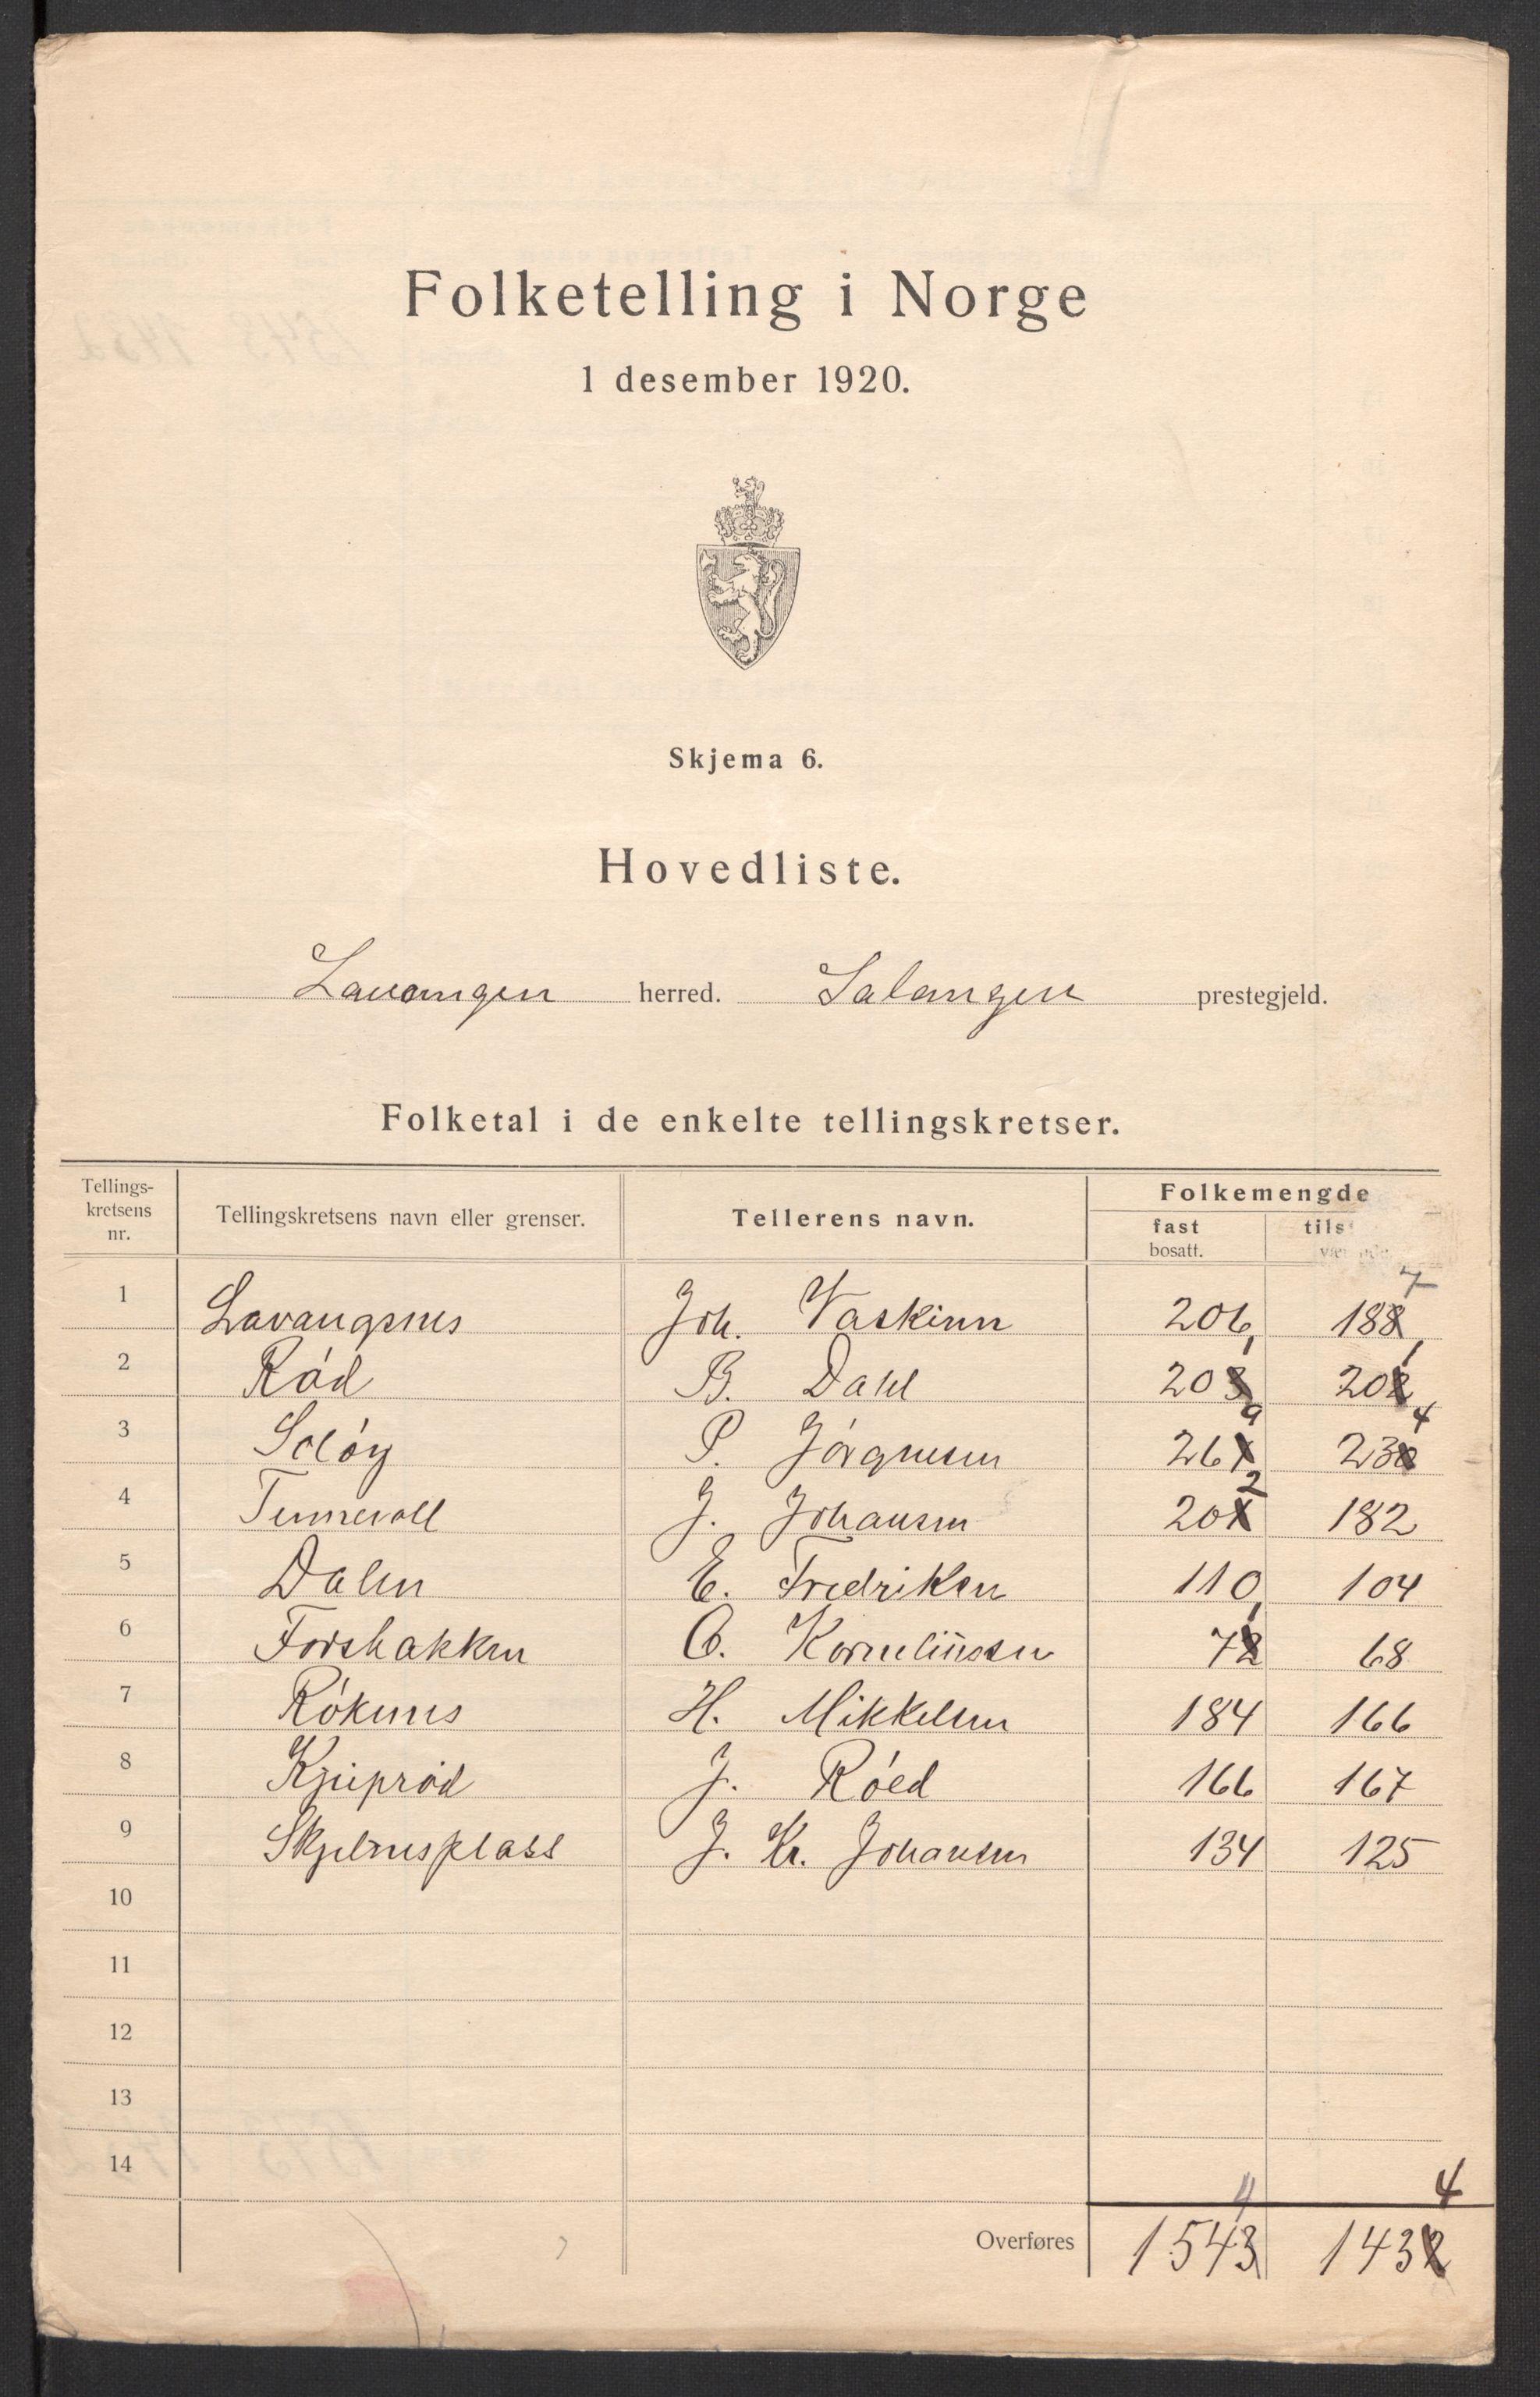 Folketelling i Norge
1 desember 1920.
Skjema 6.
Hovedliste.
Lavangen herred. Salangen prestegjeld.
Folketal i de enkelte tellingskretser.
Tellings-kretsens nr. Tellingskretsens navn eller grenser. Tellerens navn. Folkemengde
fast bosatt. tils
7
1 Lavangsnes Joh. Vaskinn 206 188
1 1
2 Rød B. Dahl 203 202
9 4
3 Soløy P. Jørgensen 261 230
2
4 Tennevoll J. Johansen 201 182
5 Dalen E. Fredriksen 110 104
1
6 Forsbakken O. Korneliussen 72 68
7 Røknes H. Mikkelsen 184 166
8 Kjeiprød J. Røed 166 167
9 Skjelnesplass J. Kr. Johansen 134 125
10
11
12
13
14
4 4
Overføres 1543 1432